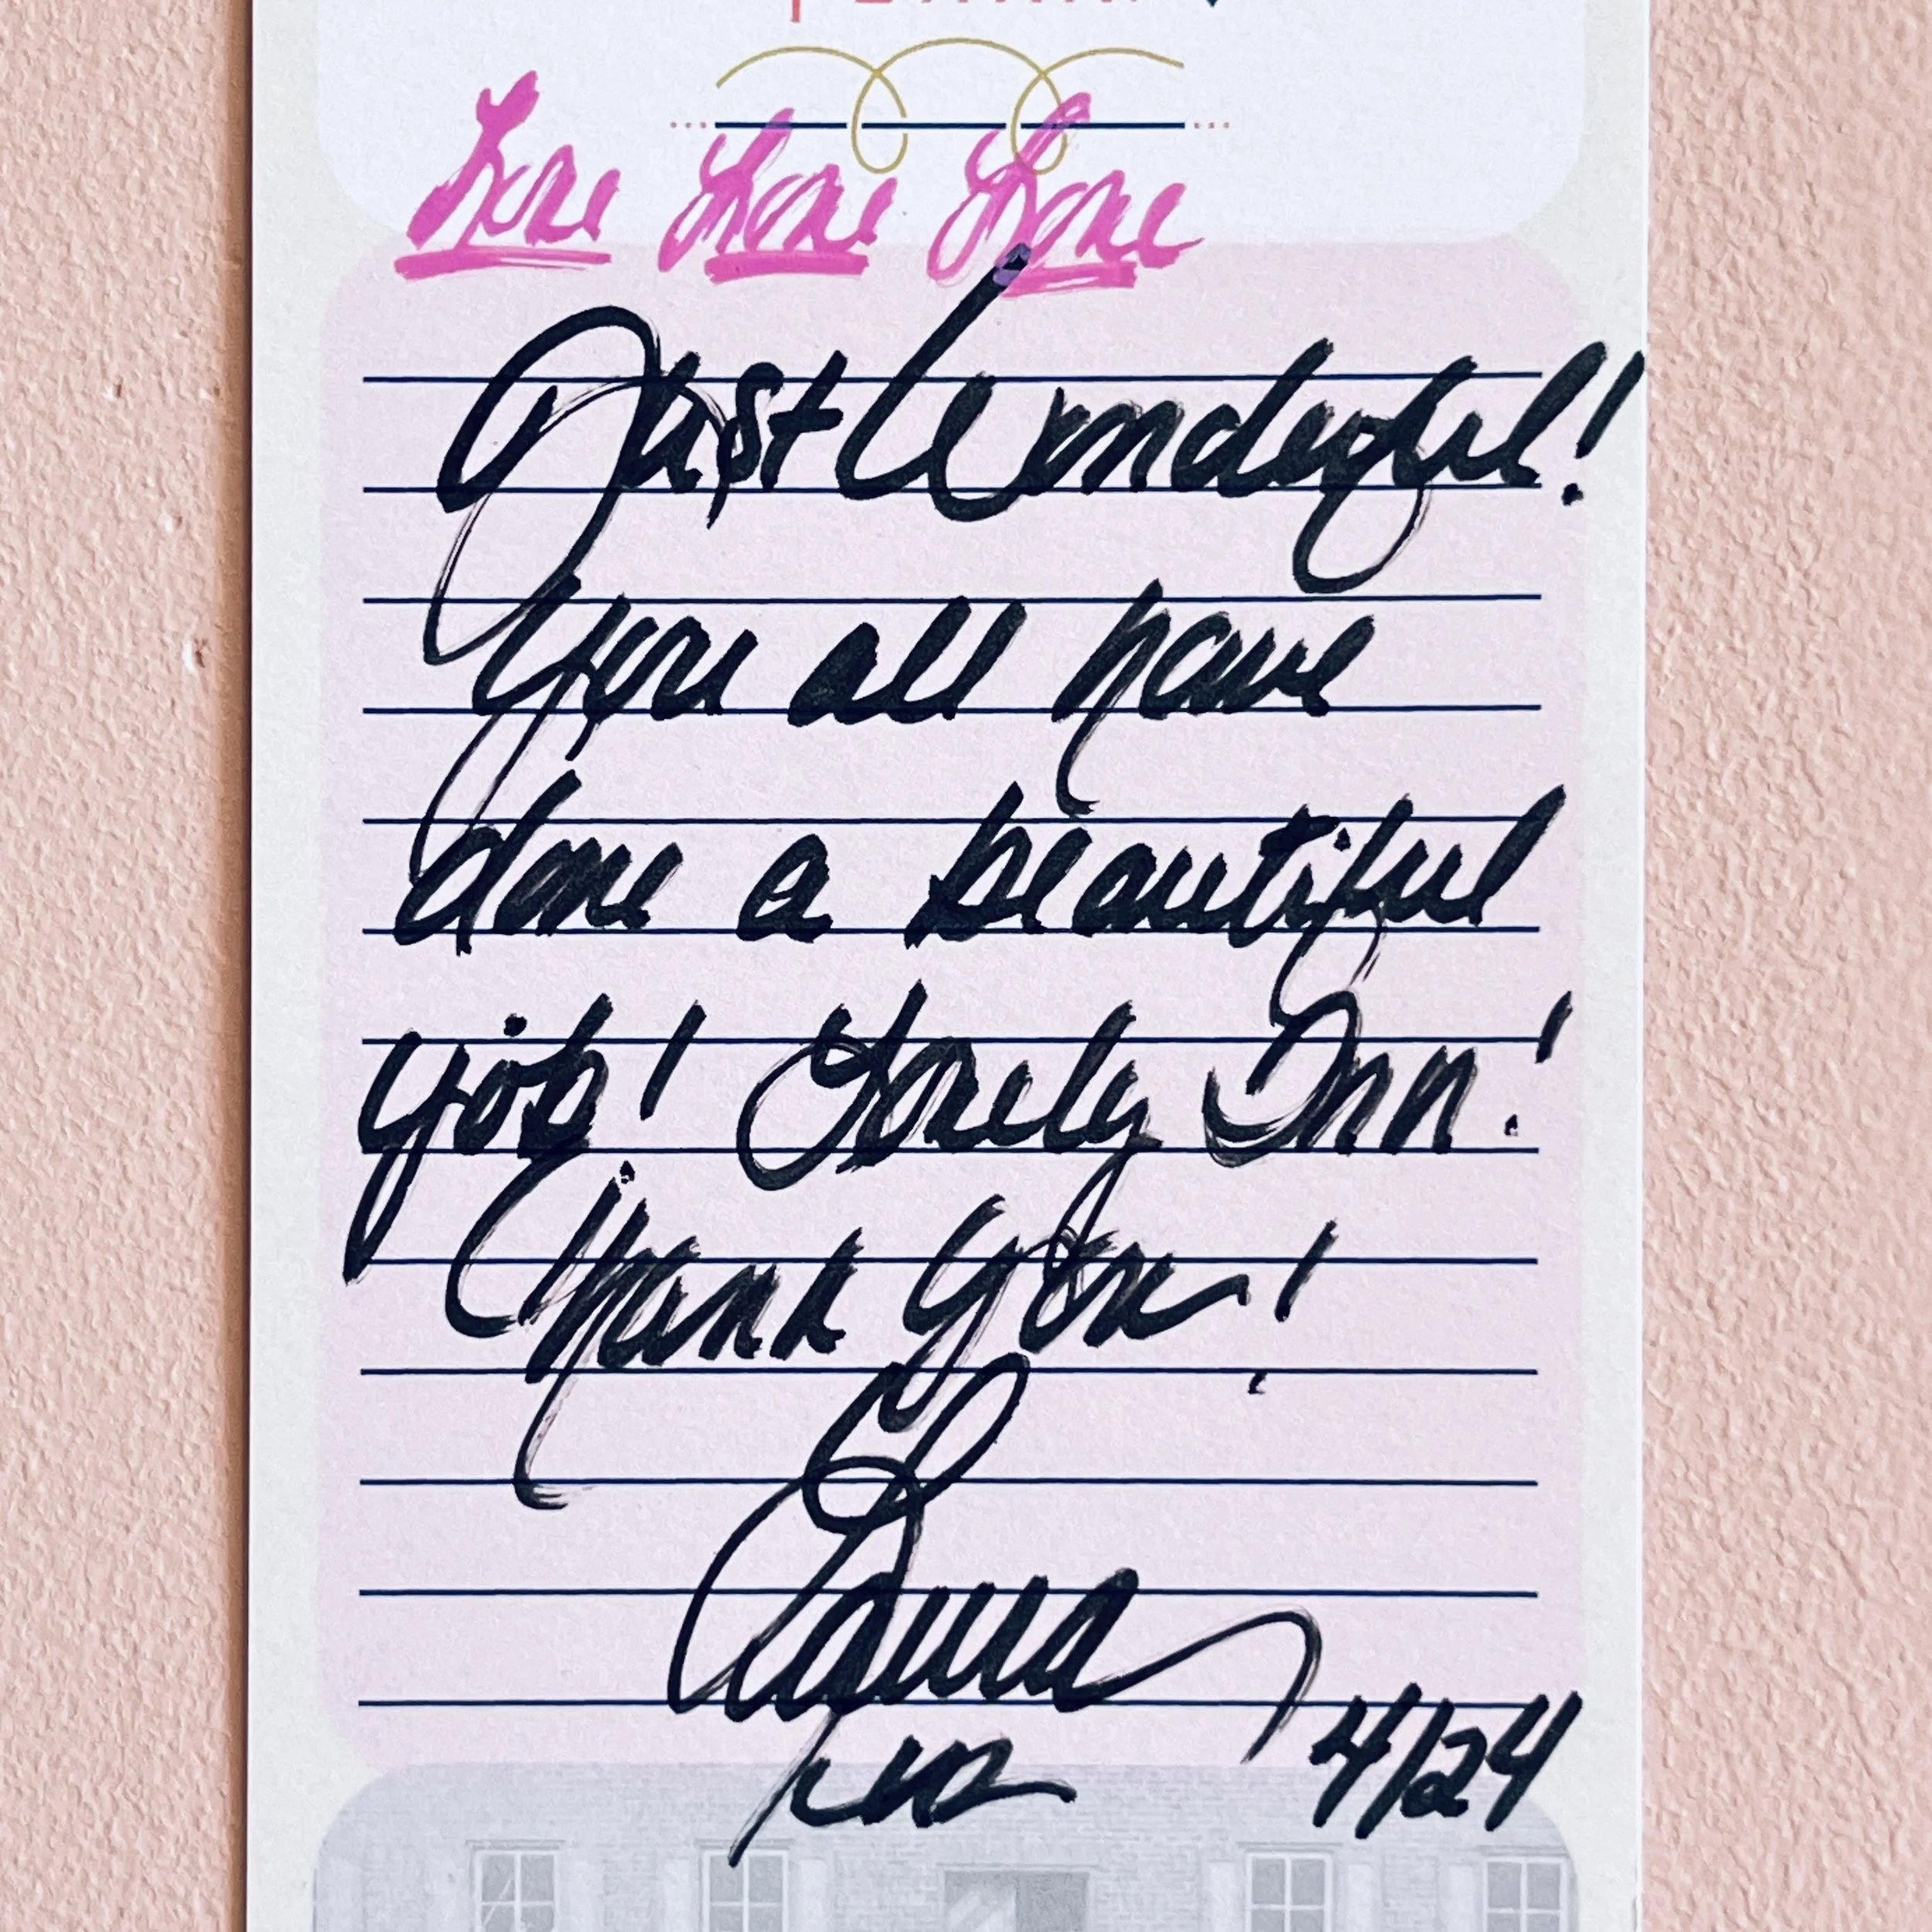 Love Love Love
Just Wonderful!
You all have
done a beautiful
job! Lovely Inn!
Thank You!
Laura
4/24